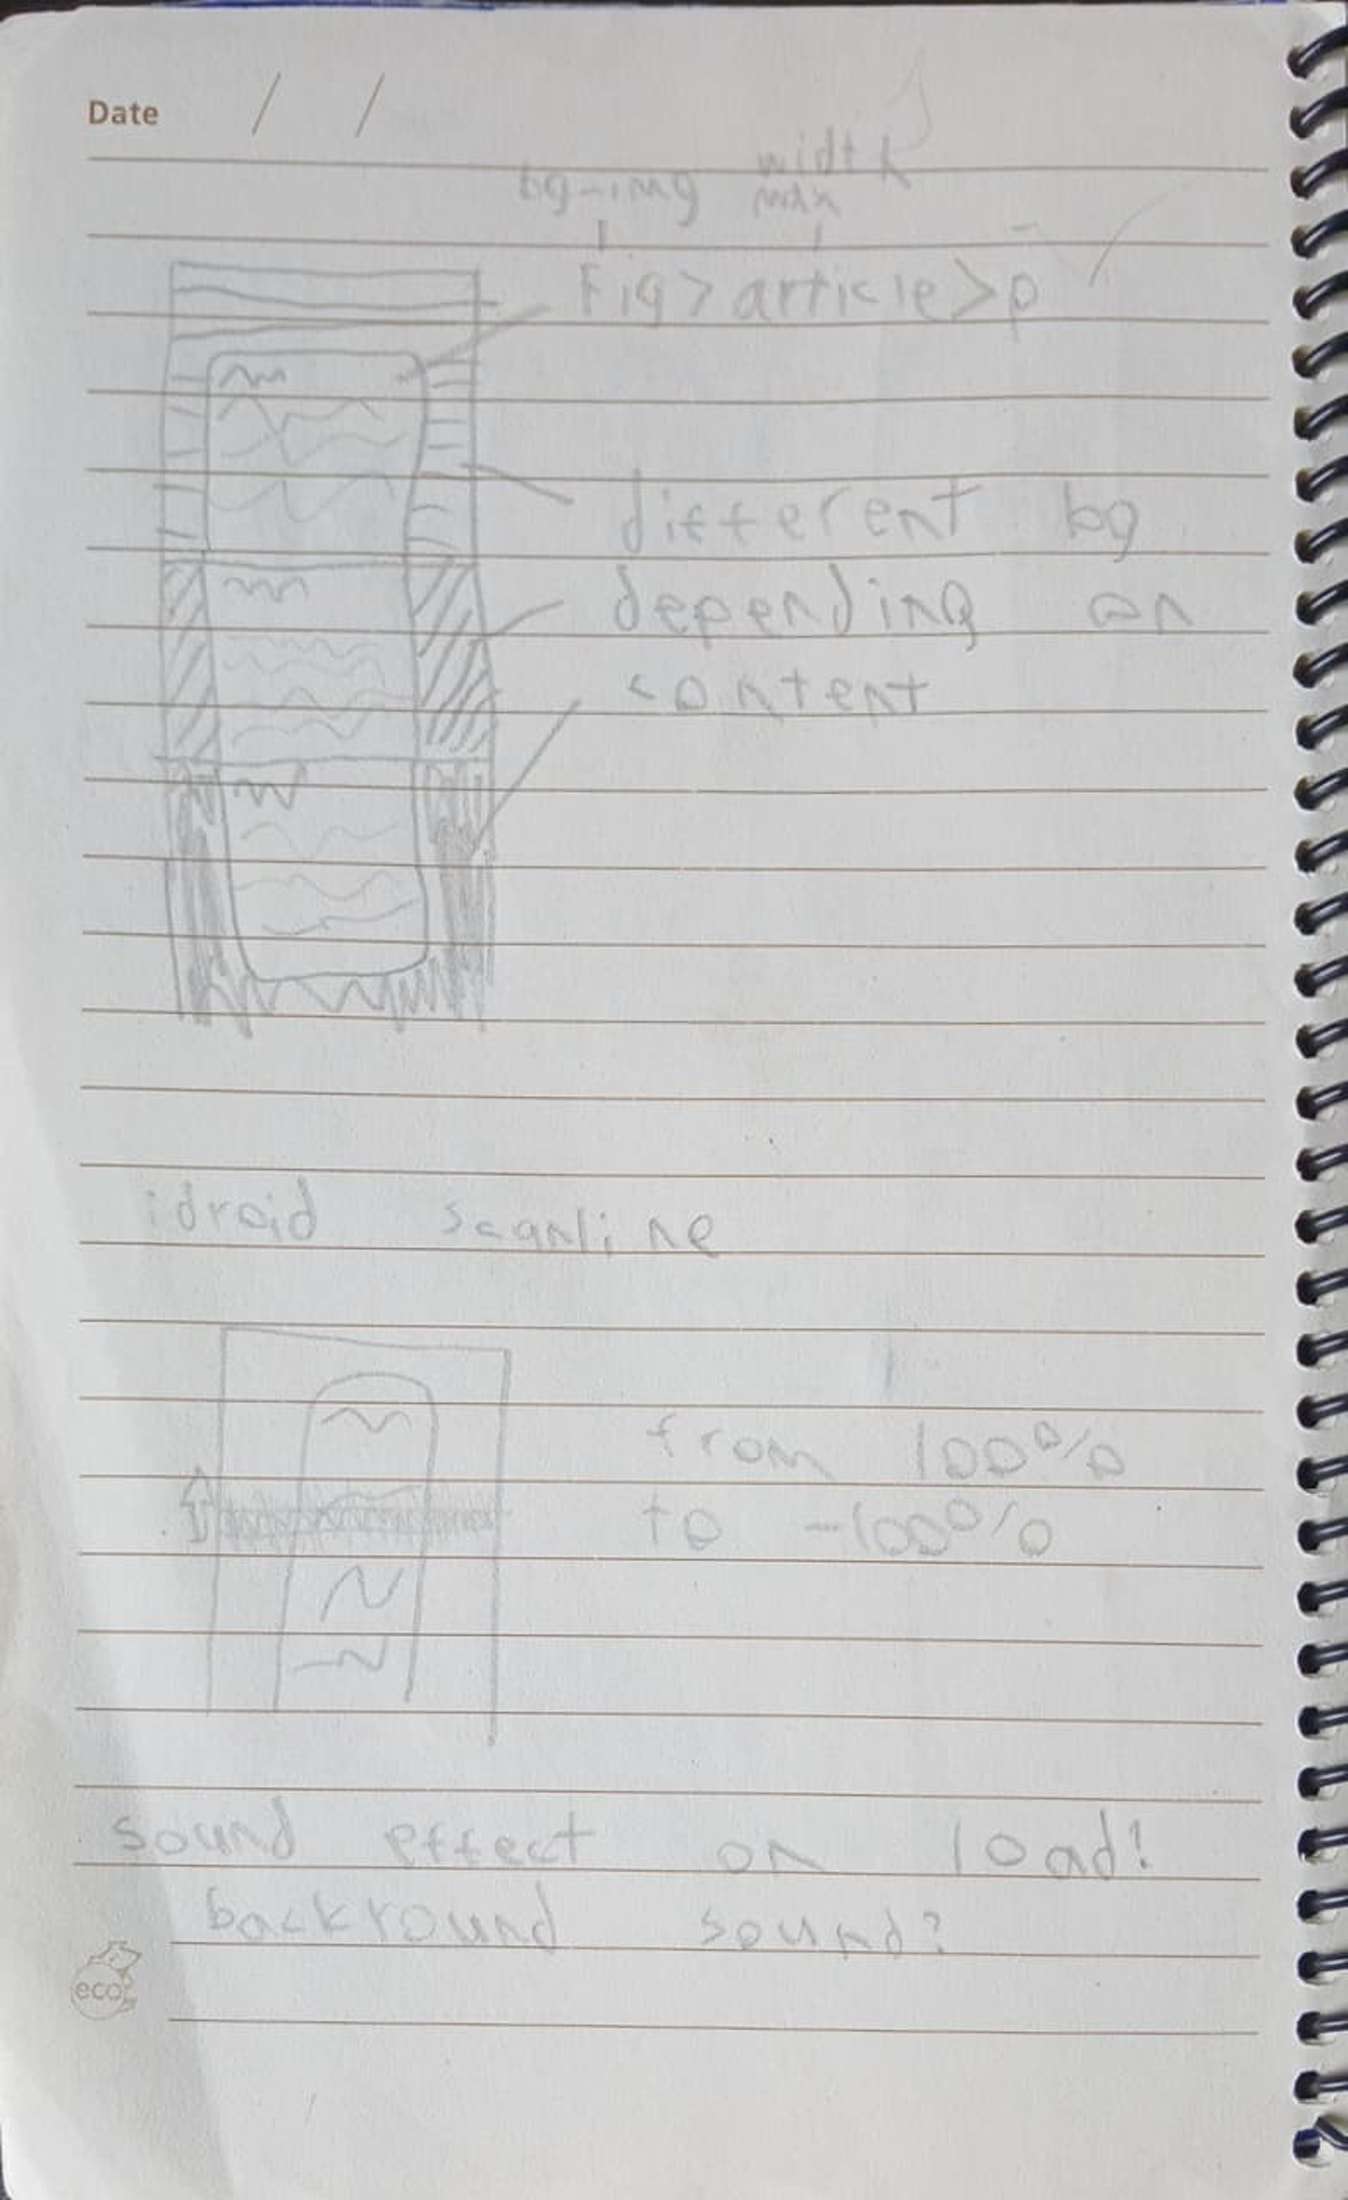 Date / /
width
bg-img max
Fig > article > p
different bg
depending on
content
idroid scanline
from 100%
to -100%
sound effect on load!
backround sound?
eco